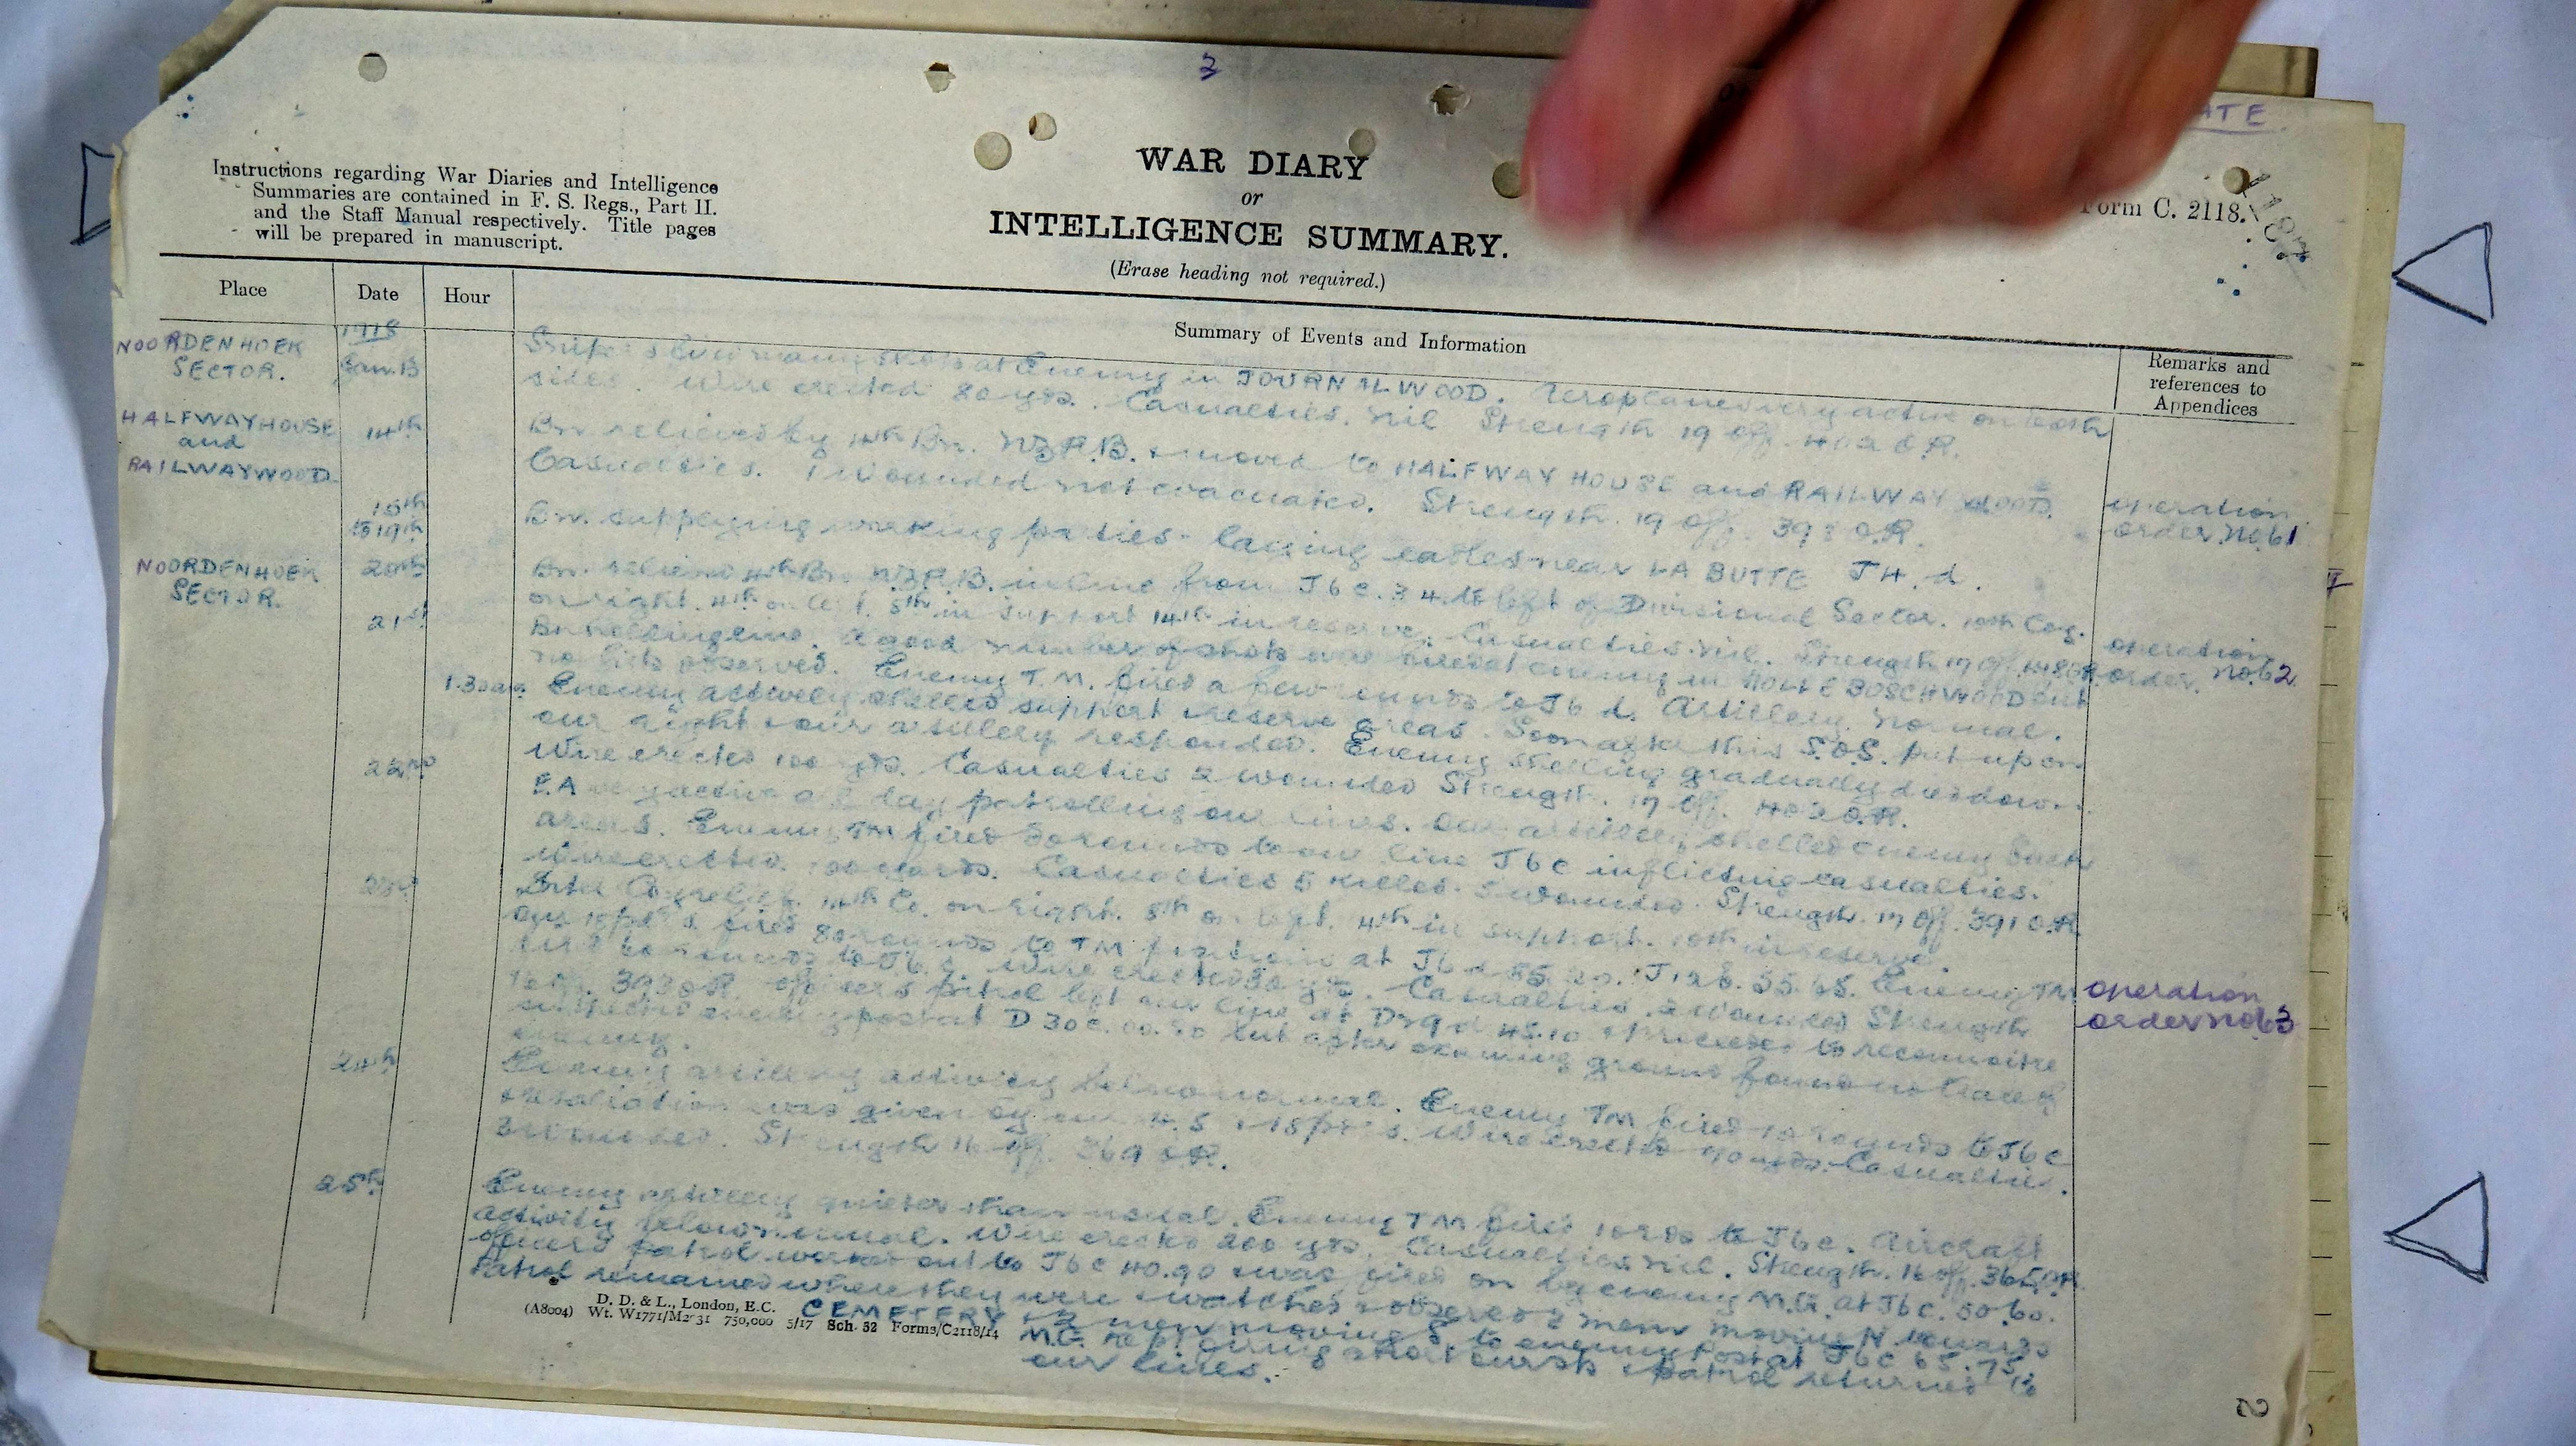 2
ATE
Instructions regarding War Diaries and Intelligence
Summaries are contained in F. S. Regs., Part II.
and the Staff Manual respectively. Title pages
will be prepared in manuscript.
WAR DIARY
or
INTELLIGENCE SUMMARY.
(Erase heading not required.)
Form C. 2118.
Place
Date
Hour
Summary of Events and Information
Remarks and
references to
Appendices
1918
NOORDENHOEK
SECTOR.
Jan. 13
Snipers fired many shots at Enemy in JOURNAL WOOD. Aeroplanes very active on both
sides. Wire erected 80 yds. Casualties. nil Strength 19 off. 402 O.R.
HALFWAYHOUSE
and
RAILWAYWOOD
14th
Bn relieved by 4th Bn. NZR.B. & moved to HALFWAY HOUSE and RAILWAY WOOD.
Casualties. 1 Wounded not evacuated. Strength. 19 off. 398 O.R.
operation
order. No.61
15th
to 19th
Bn. supplying working parties - laying cables near LA BUTTE J4.d.
NOORDENHOEK
SECTOR.
20th
Bn. relieved 4th Bn NZR.B. in line from J6c.3 4. to left of Divisional Sector. 10th Coy.
on right. 4th on left. 5th in support 14th in reserve. Casualties. nil. Strength 17 off. 418 O.R.
operation
order. No.62
21st
Bn holding line. A good number of shots were fired at enemy in HOLLEBOSCH WOOD but
no hits observed. Enemy T.M. fired a few rounds to J6 d. Artillery. normal.
1.30am
Enemy actively shelled support & reserve areas. Soon after this S.O.S. put up on
our right & our artillery responded. Enemy shelling gradually died down.
Wire erected 100 yds. Casualties 2 wounded Strength. 17 off. 402 O.R.
22nd
E.A very active all day patrolling our lines. Our artillery shelled enemy back
areas. Enemy TM fired 30 rounds to our line J6c inflicting casualties.
Wire erected. 100 yards. Casualties 5 killed. 5 wounded. Strength. 17 off. 391 O.R
23rd
Inter Coy relief. 14th Co. on right. 5th on left. 4th in support. 10th in reserve.
Our 18 pdrs fired 80 rounds to TM positions at J6d 85.20. J12b. 55.65. Enemy TM
rounds to J6.c. Wire erected 30 yds. Casualties. 2 wounded Strength
393 O.R. officers patrol left our line at D29d 45.10 & proceeded to reconnoitre
suspected enemy post at D30c.00.50 but after examining ground found no trace of
enemy.
operation
order No.63
24th
Enemy artillery activity below normal. Enemy TM fired 10 rounds to J6c
retaliation was given by our 4.5 & 18 pdrs. Wire erected 70 yds. Casualties.
3 wounded. Strength 16 off. 369 O.R.
25th
Enemy artillery quieter than usual. Enemy TM fired 10 rds to J6c. Aircraft
activity below normal. Wire erected 200 yds. Casualties nil. Strength. 16 off. 365 O.R.
officers patrol worked out to J6c 40.90 & was fired on by enemy M.G. at J6c. 50.60.
Patrol remained where they were & watched & observed 2 men moving N towards
CEMETERY & 2 men moving S. to enemy post at J6c 65.75
M.G. kept firing short bursts & patrol returned to
our lines.
D. D. & L., London, E.C.
(A8004) Wt. W1771/M2 31 750,000 5/17 Sch. 52 Forms/C2118/14